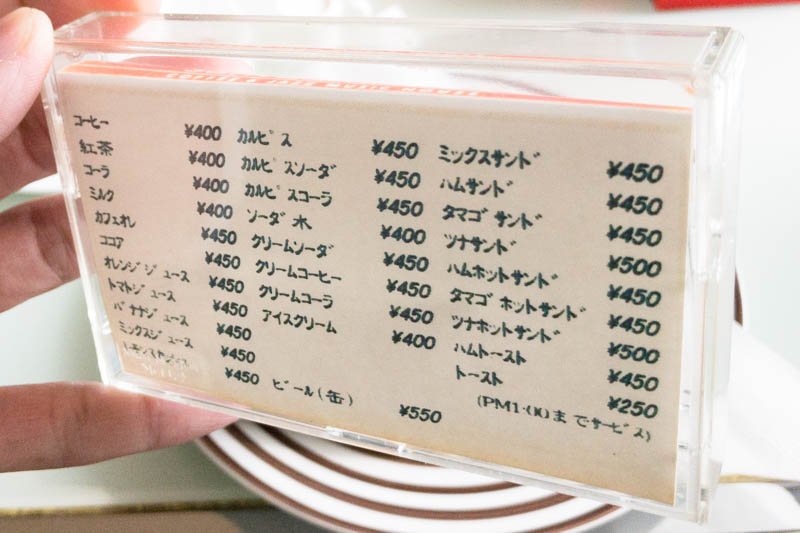 コーヒー ¥400
紅茶 ¥400
コーラ ¥400
ミルク ¥400
カフェオレ ¥450
ココア ¥450
オレンジジュース ¥450
トマトジュース ¥450
バナナジュース ¥450
ミックスジュース ¥450
¥450
カルピス ¥450
カルピスソーダ ¥450
カルピスコーラ ¥450
ソーダ水 ¥400
クリームソーダ ¥450
クリームコーヒー ¥450
クリームコーラ ¥450
アイスクリーム ¥400
ビール(缶) ¥550
ミックスサンド ¥450
ハムサンド ¥450
タマゴサンド ¥450
ツナサンド ¥500
ハムホットサンド ¥450
タマゴホットサンド ¥450
ツナホットサンド ¥500
ハムトースト ¥450
トースト ¥250
(PM1:00までサービス)